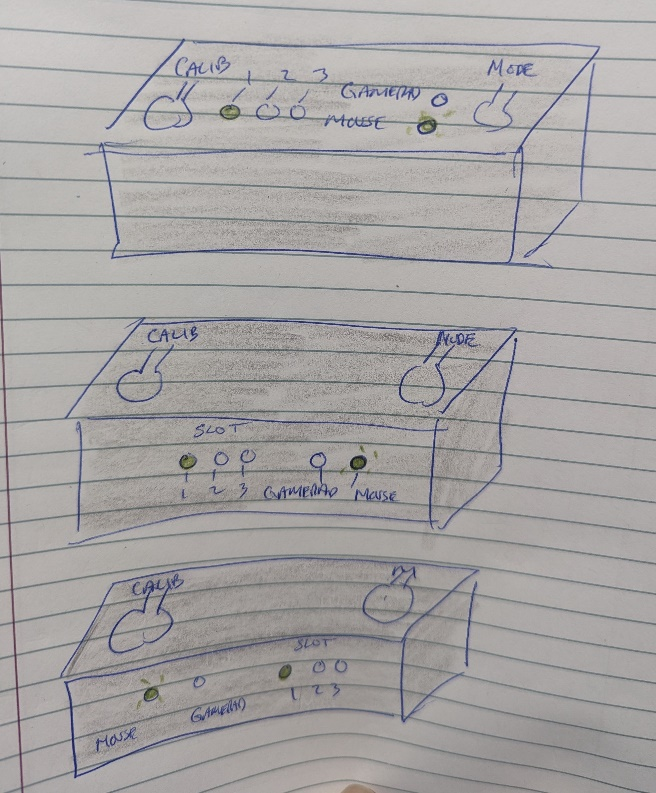 CALIB 1 2 3 MODE
GAMEPAD
MOUSE
CALIB MODE
SLOT
1 2 3 GAMEPAD MOUSE
CALIB M
SLOT
MOUSE GAMEPAD 1 2 3